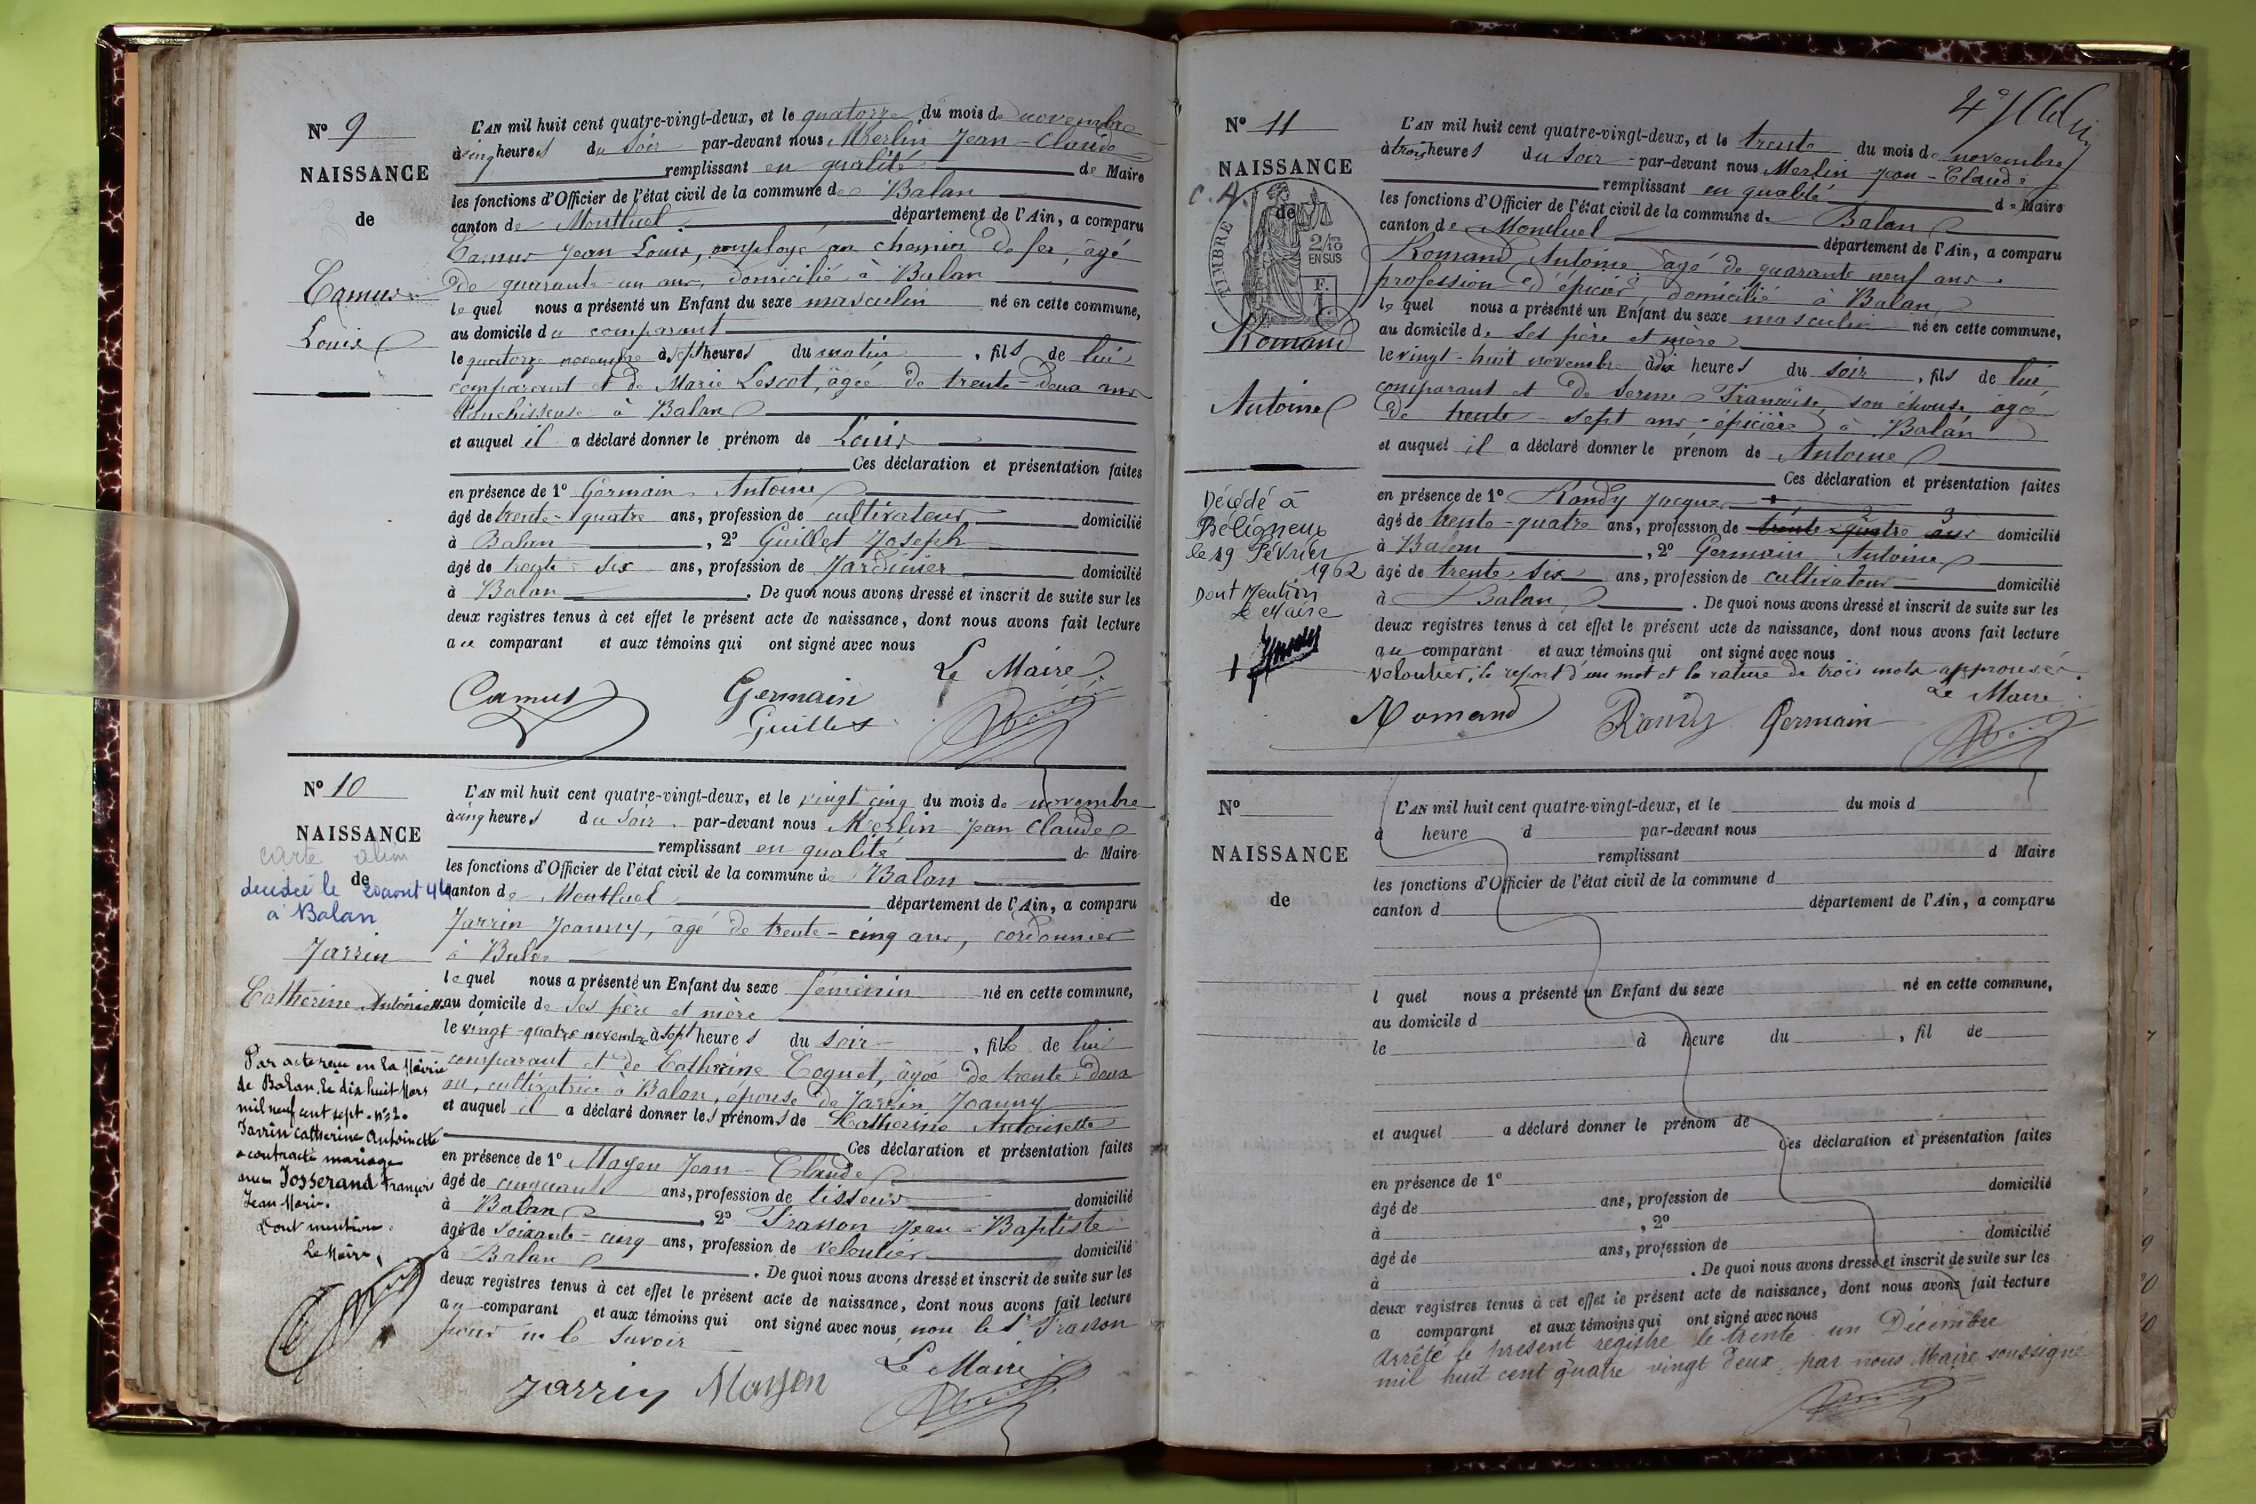 Nº 9
NAISSANCE
de
Camus
Louis
L'AN mil huit cent quatre-vingt-deux, et le quatorze du mois de novembre
à cinq heures du soir par-devant nous Merlin Jean-Claude
remplissant en qualité de Maire
les fonctions d'Officier de l'état civil de la commune de Balan
canton de Montluel département de l'Ain, a comparu
Camus Jean Louis, employé au chemin de fer, âgé
de quarante-un ans, domicilié à Balan
lequel nous a présenté un Enfant du sexe masculin né en cette commune,
au domicile du comparant
le quatorze novembre à sept heures du matin, fils de lui
comparant et de Marie Lescot, âgée de trente-deux ans
blanchisseuse à Balan
et auquel il a déclaré donner le prénom de Louis
Ces déclaration et présentation faites
en présence de 1º Germain Antoine
âgé de trente-quatre ans, profession de cultivateur domicilié
à Balan, 2º Guillet Joseph
âgé de trente-six ans, profession de Jardinier domicilié
à Balan. De quoi nous avons dressé et inscrit de suite sur les
deux registres tenus à cet effet le présent acte de naissance, dont nous avons fait lecture
au comparant et aux témoins qui ont signé avec nous
Le Maire
Camus Germain
Guillet
Nº 10
NAISSANCE
carte alim
de
décédée le 20 aout 44
à Balan
Jarrin
Catherine Antoinette
Par acte reçu en la Mairie
de Balan, le dix huit Mars
mil neuf cent sept. nº 2.
Jarrin Catherine Antoinette
a contracté mariage
avec Josserand François
Jean Marie.
Dont mention.
Le Maire,
L'AN mil huit cent quatre-vingt-deux, et le vingt cinq du mois de novembre
à cinq heures du soir par-devant nous Merlin Jean Claude
remplissant en qualité de Maire
les fonctions d'Officier de l'état civil de la commune de Balan
canton de Montluel département de l'Ain, a comparu
Jarrin Joanny, âgé de trente-cinq ans, cordonnier
à Balan
lequel nous a présenté un Enfant du sexe féminin né en cette commune,
au domicile de ses père et mère
le vingt-quatre novembre à sept heures du soir, fille de lui
comparant et de Catherine Coquet, âgée de trente-deux
an, cultivatrice à Balan, épouse de Jarrin Joanny
et auquel il a déclaré donner les prénoms de Catherine Antoinette
Ces déclaration et présentation faites
en présence de 1º Mayen Jean-Claude
âgé de cinquante ans, profession de tisseur domicilié
à Balan, 2º Frasson Jean-Baptiste
âgé de soixante-cinq ans, profession de veloutier domicilié
à Balan. De quoi nous avons dressé et inscrit de suite sur les
deux registres tenus à cet effet le présent acte de naissance, dont nous avons fait lecture
au comparant et aux témoins qui ont signé avec nous, non le Sr Frasson
pour ne le savoir
Le Maire
Jarrin Mayen
4º
Nº 11
NAISSANCE
C.A.
de
TIMBRE
2/10
EN SUS
F.
C.
Romand
Antoine
Décédé à
Béligneux
le 19 Février
1962
Dont Mention
Le Maire
L'AN mil huit cent quatre-vingt-deux, et le trente du mois de novembre
à trois heures du soir par-devant nous Merlin Jean-Claude
remplissant en qualité de Maire
les fonctions d'Officier de l'état civil de la commune de Balan
canton de Montluel département de l'Ain, a comparu
Romand Antoine âgé de quarante neuf ans
profession d'épicier, domicilié à Balan
lequel nous a présenté un Enfant du sexe masculin né en cette commune,
au domicile de ses père et mère
le vingt-huit novembre à dix heures du soir, fils de lui
comparant et de Serme Françoise, son épouse âgée
de trente-sept ans-épicière à Balan
et auquel il a déclaré donner le prénom de Antoine
Ces déclaration et présentation faites
en présence de 1º Randy Jacques
âgé de trente-quatre ans, profession de trente-quatre ans domicilié
à Balan, 2º Germain Antoine
âgé de trente six ans, profession de cultivateur domicilié
à Balan. De quoi nous avons dressé et inscrit de suite sur les
deux registres tenus à cet effet le présent acte de naissance, dont nous avons fait lecture
au comparant et aux témoins qui ont signé avec nous
veloutier, le report d'un mot et la rature de trois mots approuvés.
Le Maire
Romand Randy Germain
Nº
NAISSANCE
de
L'AN mil huit cent quatre-vingt-deux, et le du mois d
à heure d par-devant nous
remplissant d Maire
les fonctions d'Officier de l'état civil de la commune d
canton d département de l'Ain, a comparu
l quel nous a présenté un Enfant du sexe né en cette commune,
au domicile d
le à heure du, fil de
et auquel a déclaré donner le prénom de
Ces déclaration et présentation faites
en présence de 1º domicilié
âgé de ans, profession de
à, 2º domicilié
âgé de ans, profession de
à. De quoi nous avons dressé et inscrit de suite sur les
deux registres tenus à cet effet le présent acte de naissance, dont nous avons fait lecture
a comparant et aux témoins qui ont signé avec nous
Arrêté le présent registre le trente-un Décembre
mil huit cent quatre vingt deux par nous Maire soussigné